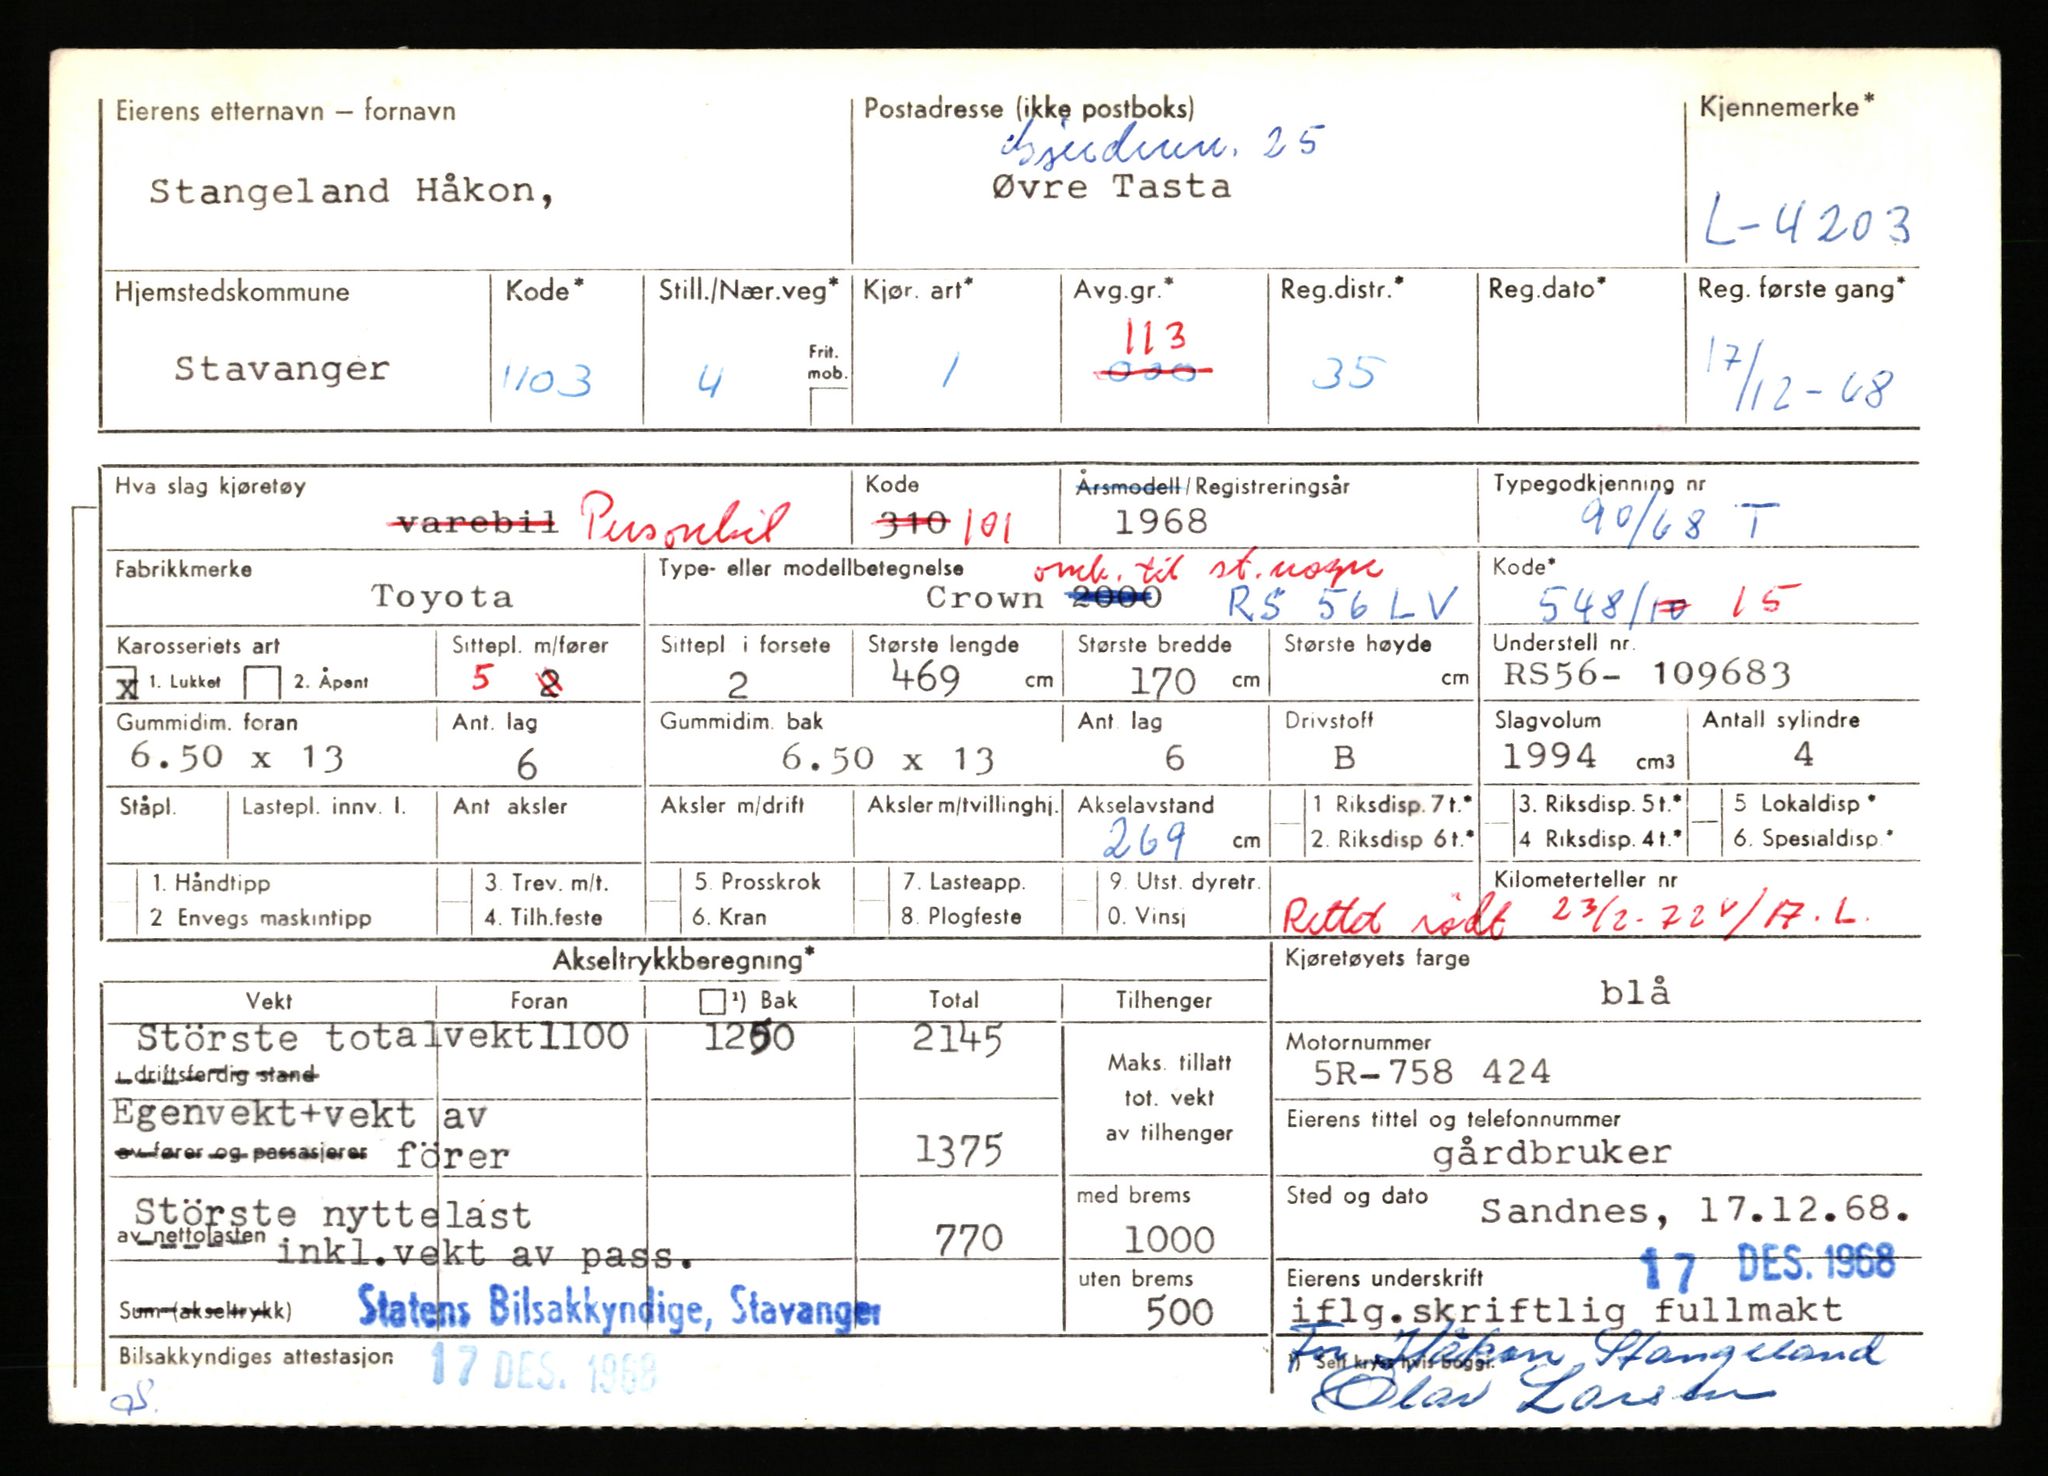 Eierens etternavn – fornavn Postadresse (ikke postboks) Kjennemerke*
25
Stangeland Håkon, Øvre Tasta
L-4203
Hjemstedskommune Kode* Still./Nær.veg* Kjør. art* Avg.gr.* Reg.distr.* Reg.dato* Reg. første gang*
113
Stavanger 1103 4 Frit. mob. 1 000 35 17/12-68
Hva slag kjøretøy Kode Årsmodell/Registreringsår Typegodkjenning nr
varebil Personbil 310 101 1968 90/68 T
Fabrikkmerke Type- eller modellbetegnelse omb. til st.vogn Kode*
Toyota Crown 2000 RS 56 LV 548/10 15
Karosseriets art Sittepl. m/fører Sittepl i forsete Største lengde Største bredde Største høyde Understell nr.
x 1. Lukket 2. Åpent 5 2 2 469 cm 170 cm cm RS56- 109683
Gummidim. foran Ant. lag Gummidim. bak Ant lag Drivstoff Slagvolum Antall sylindre
6.50 x 13 6 6.50 x 13 6 B 1994 cm3 4
Ståpl. Lastepl. innv. l. Ant aksler Aksler m/drift Aksler m/tvillinghj. Akselavstand 1 Riksdisp. 7t.* 3. Riksdisp. 5t.* 5 Lokaldisp*
269 cm 2. Riksdisp 6t.* 4 Riksdisp. 4t.* 6. Spesialdisp.*
1. Håndtipp 3. Trev. m/t. 5. Prosskrok 7. Lasteapp. 9. Utst. dyretr. Kilometerteller nr
2 Envegs maskintipp 4. Tilh.feste 6. Kran 8. Plogfeste 0. Vinsj Rettet rødt 23/2-72 v/17.L.
Akseltrykkberegning* Kjøretøyets farge
blå
Vekt Foran ¹) Bak Total Tilhenger
Störste totalvekt 1100 1250 2145
i driftsferdig stand
Maks. tillatt tot. vekt av tilhenger
Motornummer
5R-758 424
Egenvekt+vekt av
av fører og passasjerer förer 1375
Eierens tittel og telefonnummer
gårdbruker
Störste nyttelast
av nettolasten inkl.vekt av pass. 770
med brems
1000
Sted og dato Sandnes, 17.12.68.
17 DES. 1968
uten brems
500
Sum (akseltrykk) Statens Bilsakkyndige, Stavanger
Eierens underskrift
iflg.skriftlig fullmakt
Bilsakkyndiges attestasjon 17 DES. 1968
For Håkon Stangeland
¹) Sett kryss hvis boggi.
Olav Larsen